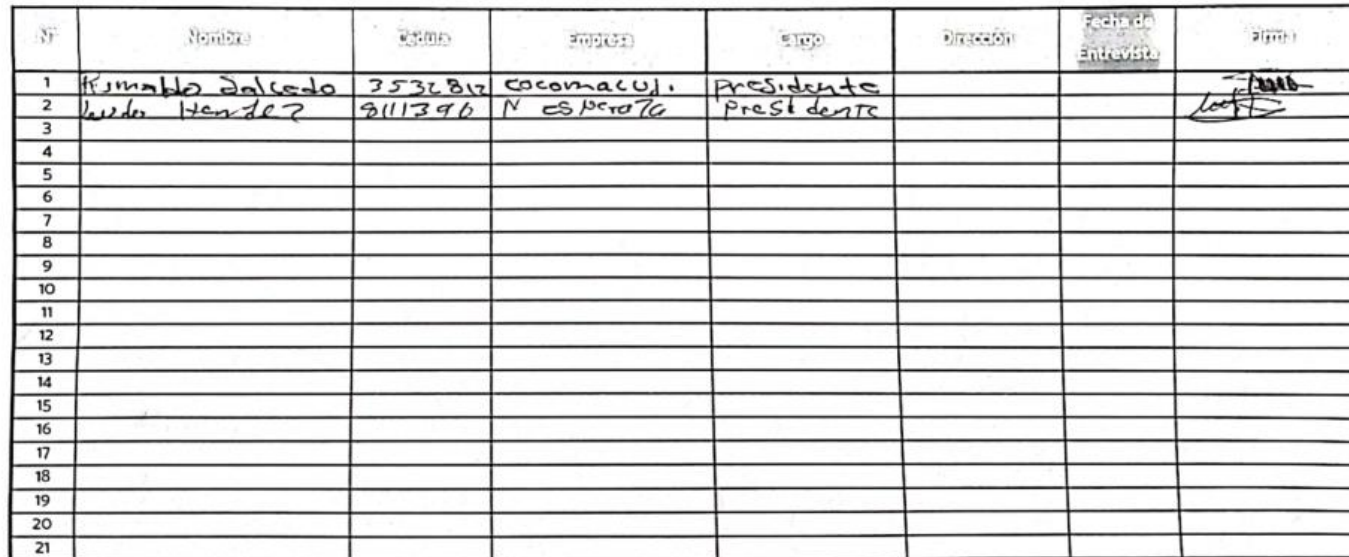 N° Nombre Cedula Empresa Cargo Dirección Fecha de Entrevista Firma
1 Salcedo 3532812 cocomacul. presidente
2 8111396 N esperanza presidente
3
4
5
6
7
8
9
10
11
12
13
14
15
16
17
18
19
20
21